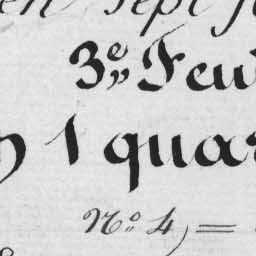 en Sept f
3.e Feu
1 quar
No. 4, =